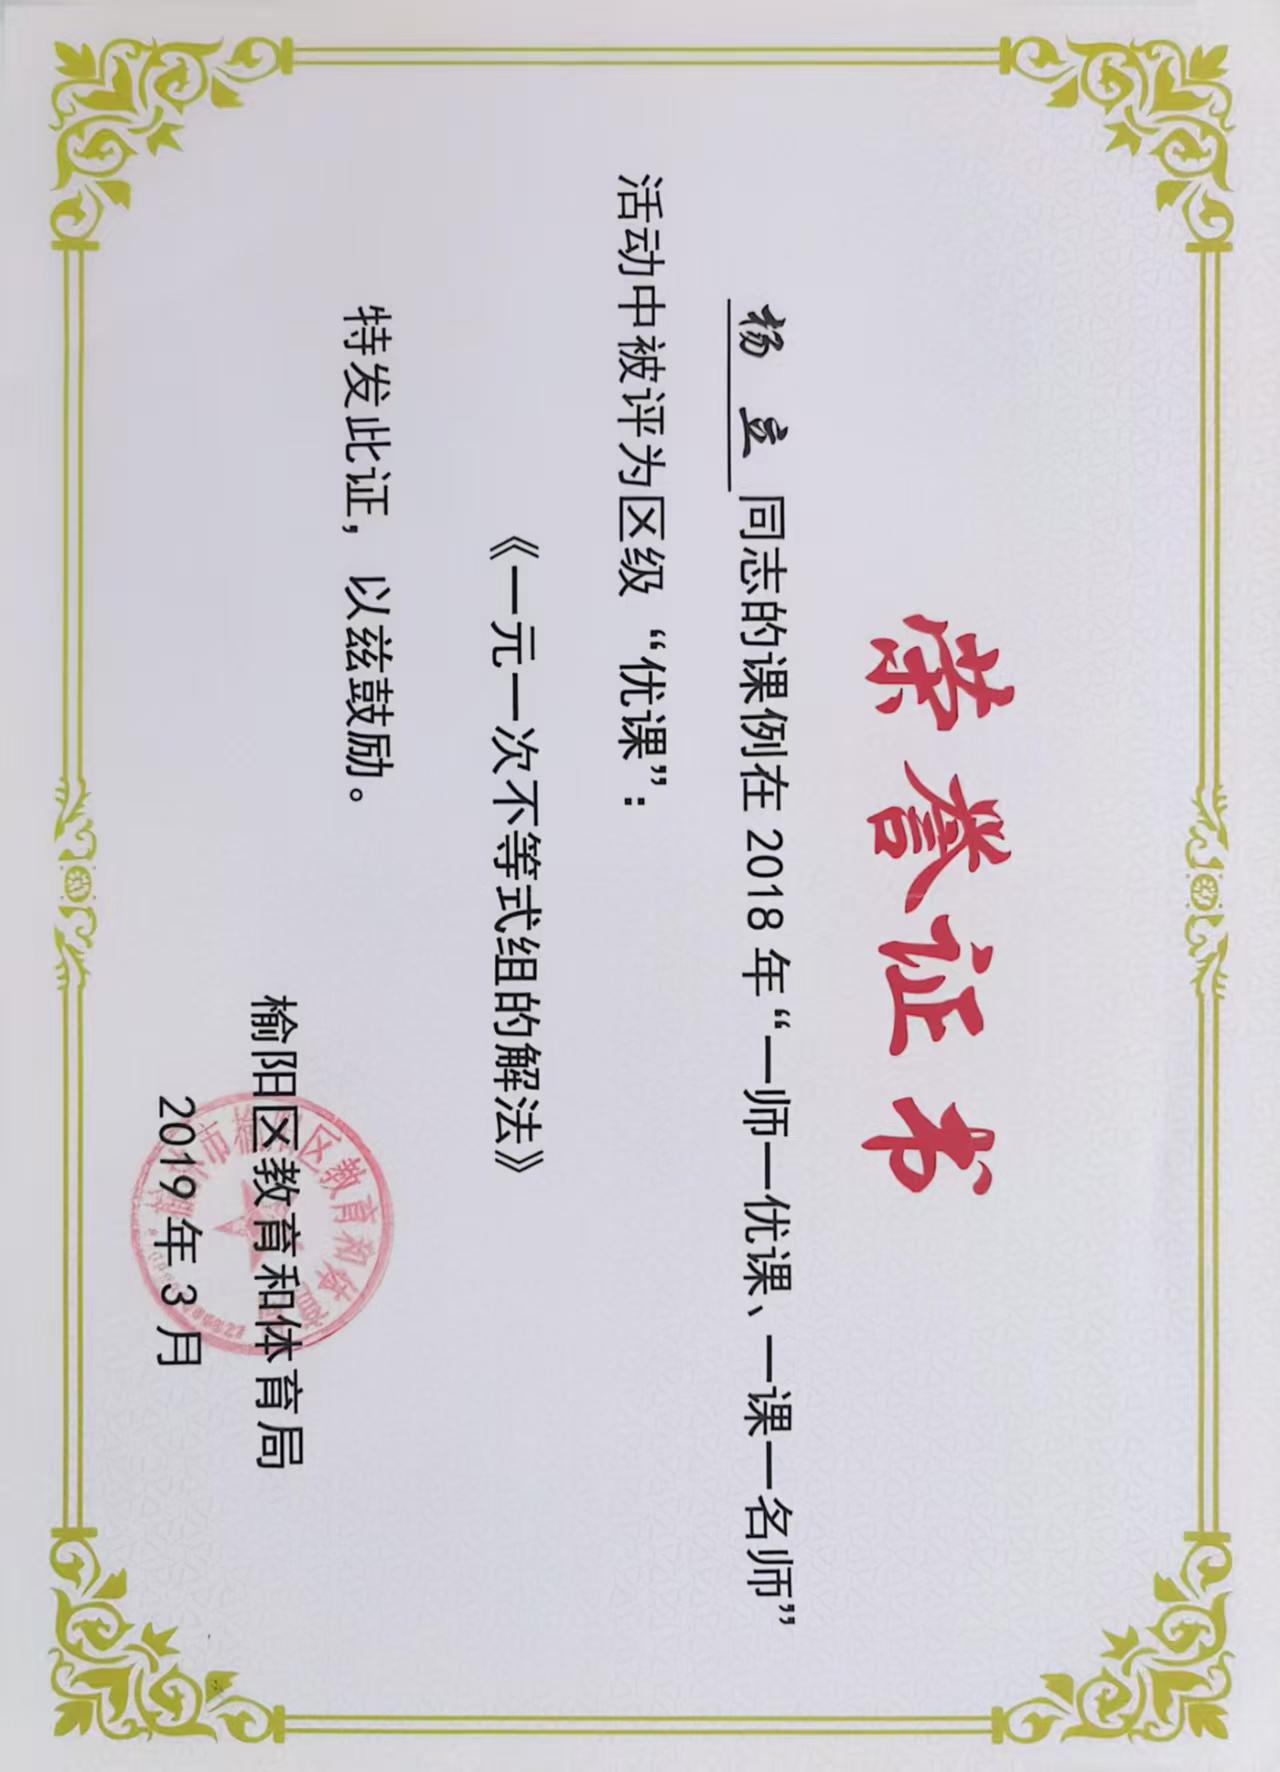 荣誉证书
杨立同志的课例在2018年“一师一优课、一课一名师”
活动中被评为区级“优课”：
《一元一次不等式组的解法》
特发此证，以兹鼓励。
榆阳区教育和体育局
2019年3月
榆林市榆阳区教育和体育局